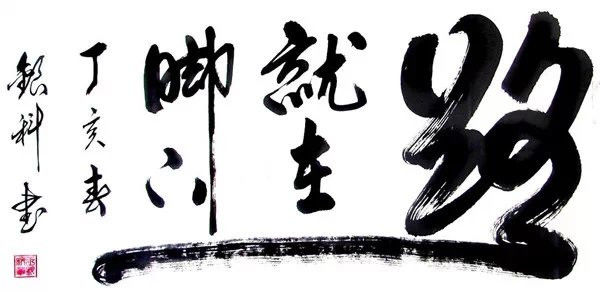 路
就在
脚下
丁亥春
银科书